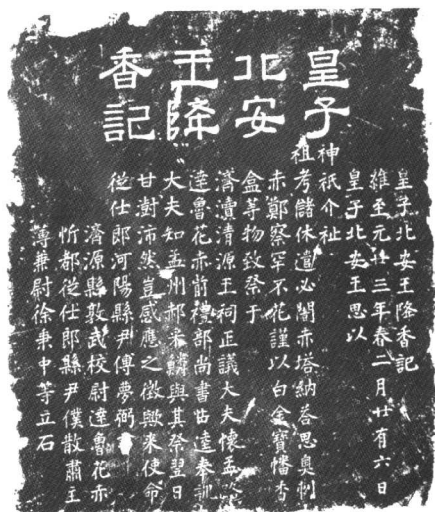 皇子
北安
王降
香記
皇子北安王降香記
維至元廿三年春二月廿有六日
皇子北安王思以
神祇介祉
祖考儲休遣必闍赤塔納荅思奧剌
赤鄭察罕不花謹以白金寶幡香
盒等物致祭于
濟瀆清源王祠正議大夫懷孟路
達魯花赤前禮部尚書占達奉訓
大夫知孟州郝采麟與其祭翌日
甘澍沛然豈感應之徵歟來使命
從仕郎河陽縣尹傅夢弼書
濟源縣敦武校尉達魯花赤
忻都從仕郎縣尹僕散肅主
薄兼尉徐秉中等立石